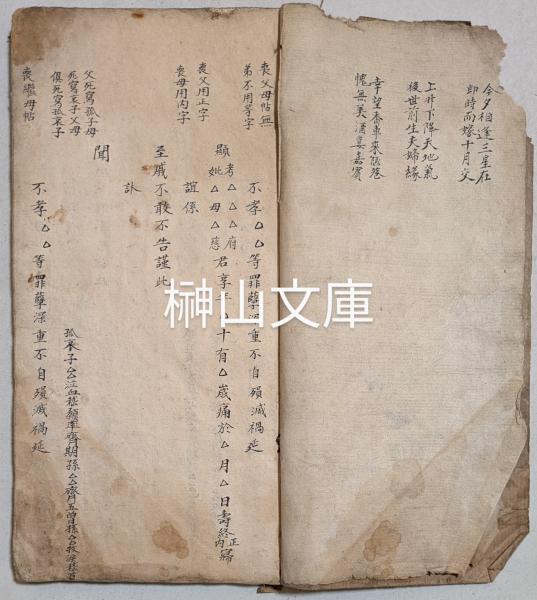 今夕相逢三星在
即時而嫁十月交
上升下降天地氣
後世前生夫婦緣
幸望香車來陋巷
愧無美酒宴嘉賓
喪父母帖無
弟不用等字
喪父用正字
喪母用內字
父死寫孤子母
死寫哀子父母
俱死寫孤哀子
喪繼母帖
不孝△△等罪孽深重不自殞滅禍延
顯考△△△府君享年△十有△歲痛於△月△日壽終正寢
妣△母△慈 內
誼係
至戚不敢不告謹此
訃
聞
孤哀子△△泣血稽顙率齊期孫△△齊五曾孫△△抆淚稽首
不孝△△等罪孽深重不自殞滅禍延
榊山文庫